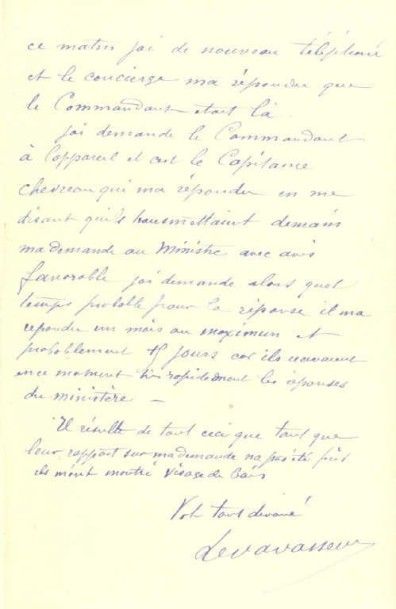 ce matin jai de nouveau téléphoné
et le concierge ma répondu que
le Commandant etait là
jai demandé le Commandant
à l'appareil et cest le Capitaine
chevreau qui ma répondu en me
disant qu'ils transmettaient demain
ma demande au Ministre avec avis
favorable jai demandé alors quel
temps probable pour la réponse il ma
repondu un mois au maximun et
probablement 15 jours car ils recevaient
en ce moment très rapidement les réponses
du ministère —
Il résulte de tout ceci que tant que
leur rapport sur ma demande na pas été fait
ils mont montré visage de bois
Votre tout dévoué
Levavasseur